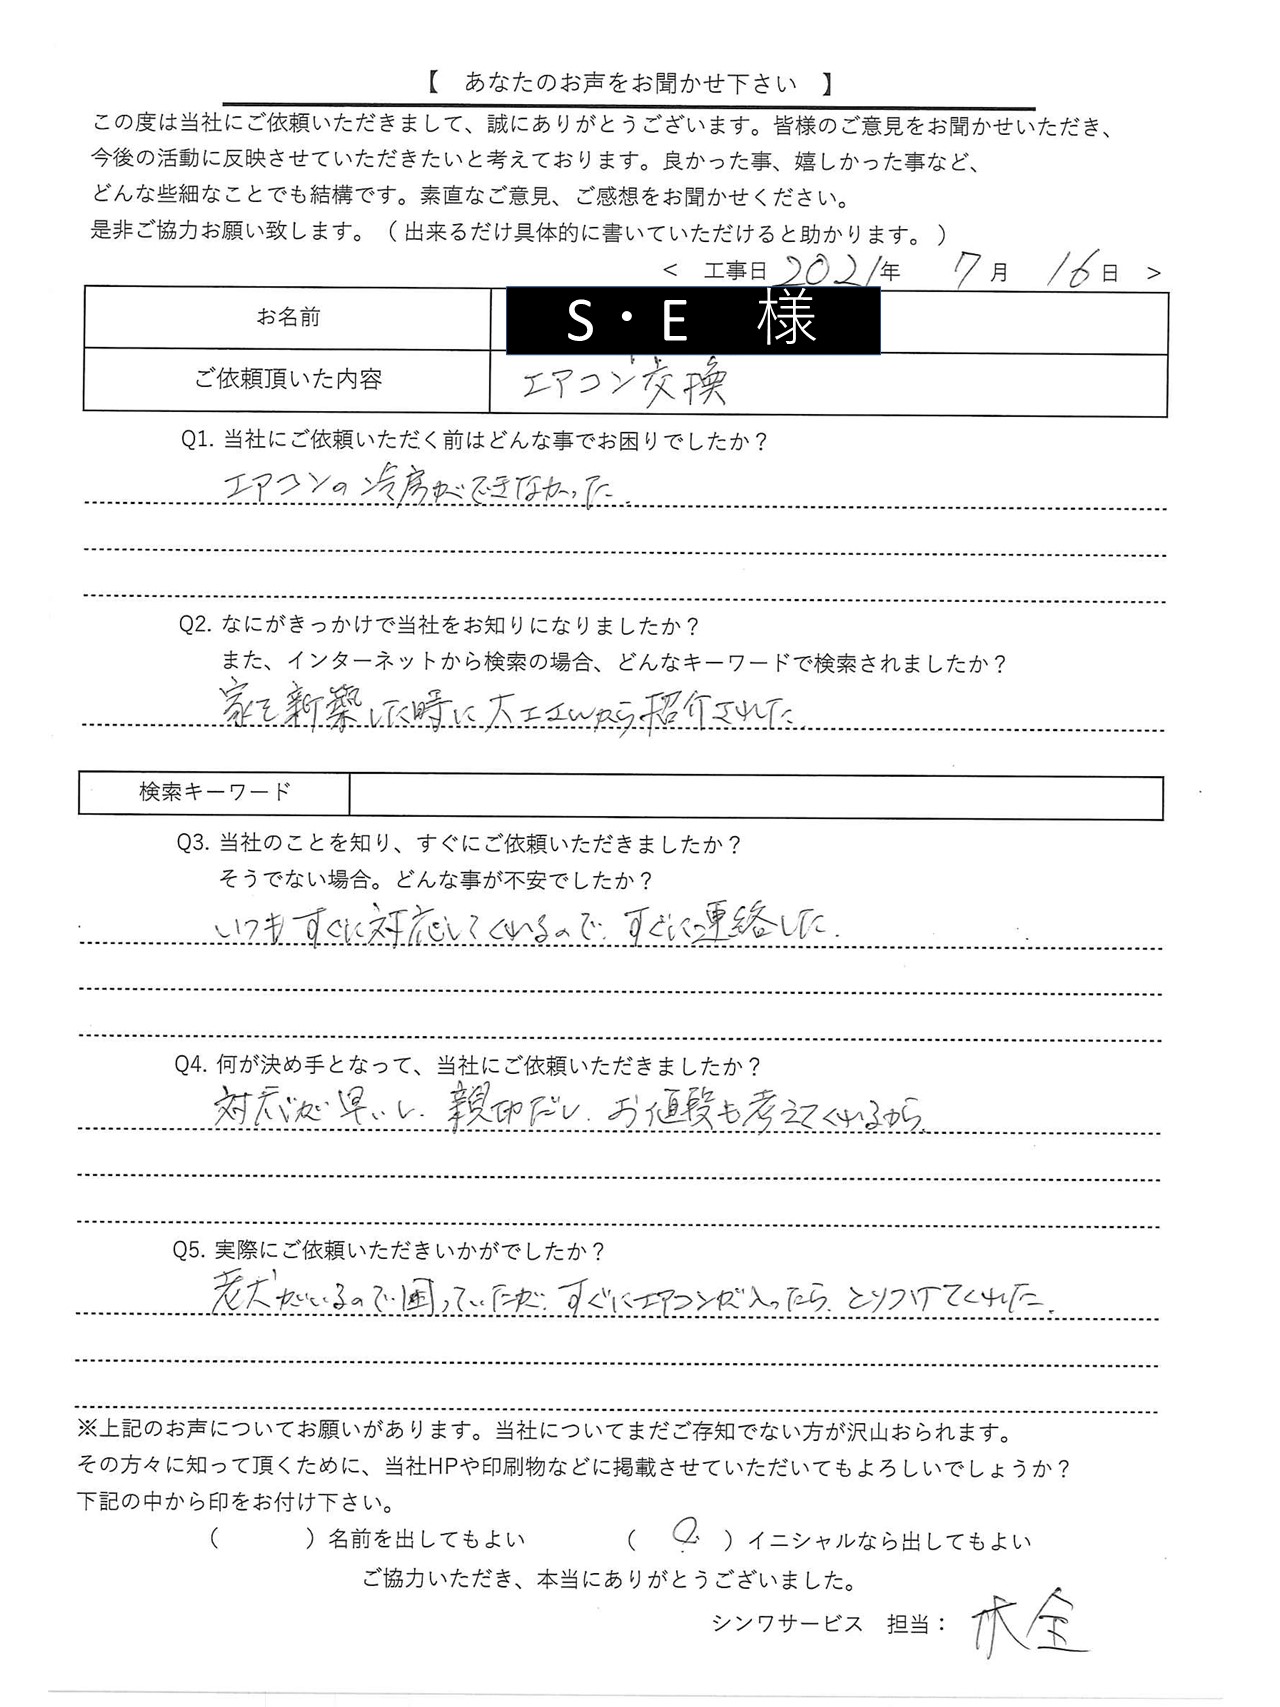 【 あなたのお声をお聞かせ下さい 】
この度は当社にご依頼いただきまして、誠にありがとうございます。皆様のご意見をお聞かせいただき、
今後の活動に反映させていただきたいと考えております。良かった事、嬉しかった事など、
どんな些細なことでも結構です。素直なご意見、ご感想をお聞かせください。
是非ご協力お願い致します。（ 出来るだけ具体的に書いていただけると助かります。 ）
＜ 工事日 2021年 7月 16日 ＞
お名前 S・E 様
ご依頼頂いた内容 エアコン交換
Q1. 当社にご依頼いただく前はどんな事でお困りでしたか？
エアコンの冷房ができなかった.
Q2. なにがきっかけで当社をお知りになりましたか？
また、インターネットから検索の場合、どんなキーワードで検索されましたか？
家を新築した時に大工さんから紹介された.
検索キーワード
Q3. 当社のことを知り、すぐにご依頼いただきましたか？
そうでない場合。どんな事が不安でしたか？
いつもすぐに対応してくれるので.すぐに連絡した.
Q4. 何が決め手となって、当社にご依頼いただきましたか？
対応が早いし.親切だし.お値段も考えてくれるから.
Q5. 実際にご依頼いただきいかがでしたか？
老犬がいるので困っていたが.すぐにエアコンが入ったら.とりつけてくれた.
※上記のお声についてお願いがあります。当社についてまだご存知でない方が沢山おられます。
その方々に知って頂くために、当社HPや印刷物などに掲載させていただいてもよろしいでしょうか？
下記の中から印をお付け下さい。
（ ）名前を出してもよい （ ○ ）イニシャルなら出してもよい
ご協力いただき、本当にありがとうございました。
シンワサービス 担当：